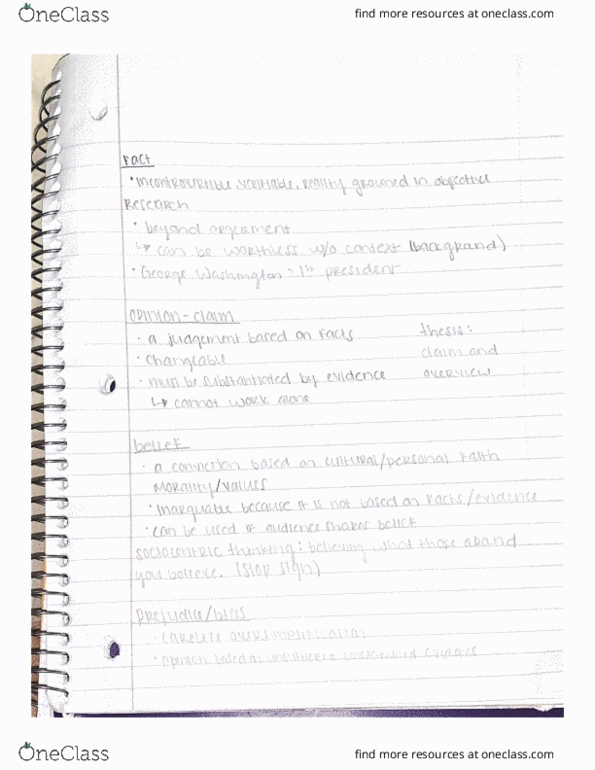 OneClass
find more resources at oneclass.com
Fact
• incontrovertible, verifiable, reality grounded in objective
Research
• beyond argument
↳ can be worthless w/o context (background)
• George Washington = 1st president
opinion-claim
• a judgement based on Facts
thesis:
• changeable
claim and
• must be substantiated by evidence
overview
↳ cannot work alone
belief
• a conviction based on cultural/personal Faith
Morality/values
• inarguable because it is not based on Facts/evidence
• can be used if audience shares belief
sociocentric thinking: believing what those around
you believe. (stop sign)
Prejudice/bias
• opinion based on evidence
OneClass
find more resources at oneclass.com